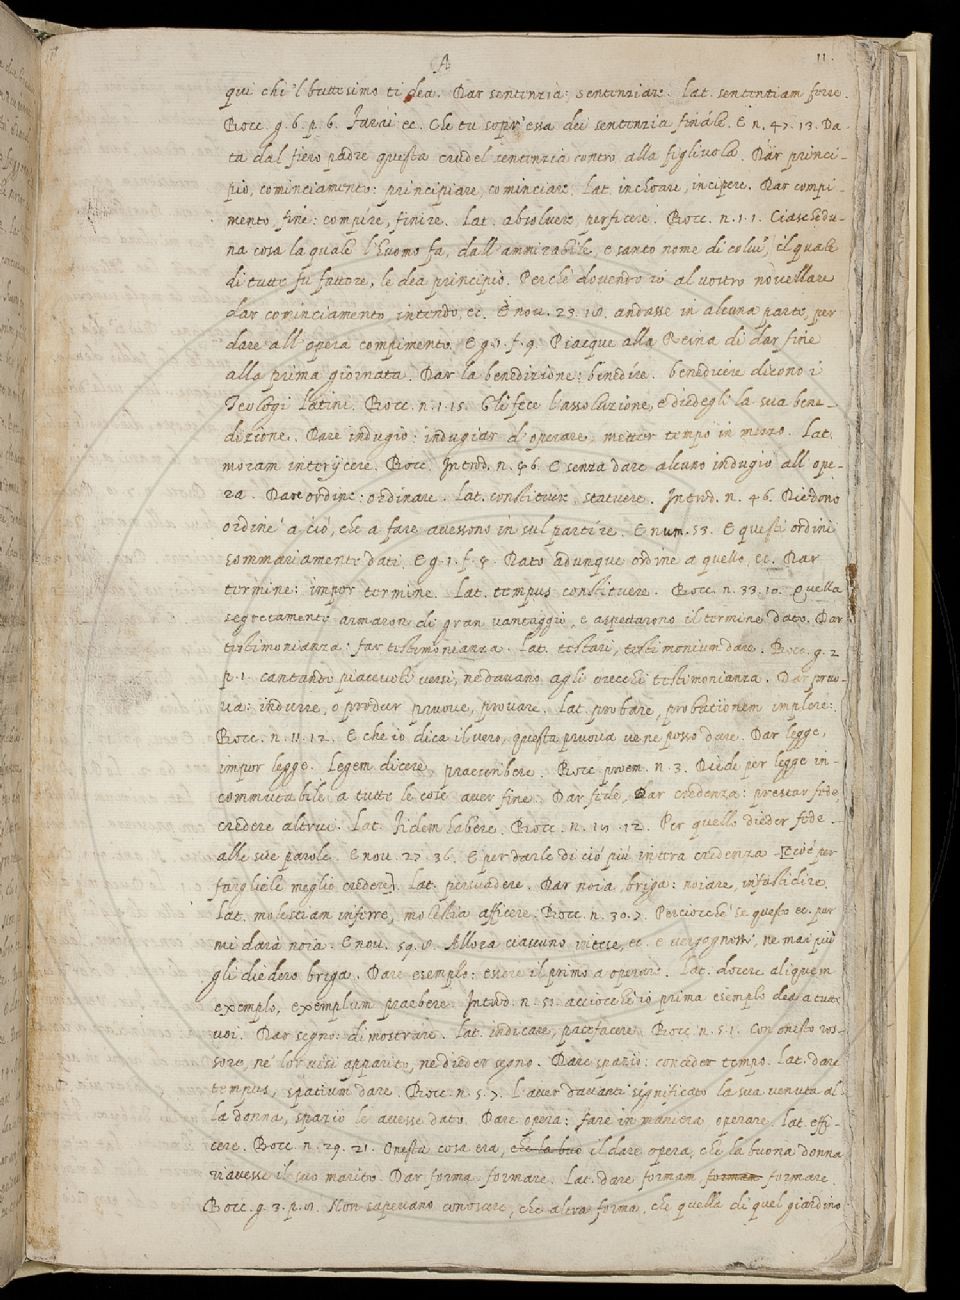 A
11.
qui chi 'l battesimo ti dea. Dar sentenzia: sentenziare. Lat. sentintiam ferre.
Bocc. g. 6. p. 6. Farai ec. che tu sopr' essa dei sentenzia finale. E n. 47. 13. Da-
ta dal fiero padre questa crudel sentenzia contro alla figliuola. Dar princi-
pio, cominciamento: principiare, cominciare. Lat. inchoare, incipere. Dar compi-
mento, fine: compire, finire. Lat. absolvere, perficere. Bocc. n. 1. 1. Ciaschedu-
na cosa la quale l'huomo fa, dall'ammirabile, e santo nome di colui, il quale
di tutte fu fattore, le dea principio. Perche dovendo io al vostro novellare
dar cominciamento intendo, ec. E nov. 23. 18. andasse in alcuna parte, per
dare all'opera compimento. E g. 1. f. 9. Piacque alla Reina di dar fine
alla prima giornata. Dar la benedizione: benedire. benedicere dicono i
Teologi Latini. Bocc. n. 1. 15. Gli fece l'assoluzione, e diedegli la sua bene-
dizione. Dare indugio: indugiar d'operare, metter tempo in mezzo. Lat.
moram interijcere. Bocc. Introd. n. 46. E senza dare alcuno indugio all'ope-
ra. Dare ordine: ordinare. Lat. constituere statuere. Introd. n. 46. Diedono
ordine a ciò, che a fare avessono in sul partire. E num. 53. E questi ordini
sommariamente dati. E g. 1. f. 8. Dato adunque ordine a quello, ec. Dar
termine: impor termine. Lat. tempus constituere. Bocc. n. 33. 10. Quella
segretamente armaron di gran vantaggio, e aspettarono il termine dato. Dar
testimonianza: far testimonianza. Lat. testari, testimonium dare. Bocc. g. 2
p. 1. cantando piacevoli versi, ne davano agli orecchi testimonianza. Dar pruo-
va: indurre, o produr pruove, provare. Lat. probare, probationem implere.
Bocc. n. 11. 12. E che io dica il vero, questa pruova ve ne posso dare. Dar legge,
impor legge. Legem dicere, praescribere. Bocc. proem. n. 3. Diedi per legge in-
commutabile a tutte le cose aver fine. Dar fede, dar credenza: prestar fede,
credere altrui. Lat. fidem habere. Bocc. n. 18. 12. Per quello dieder fede.
alle sue parole. E nov. 27. 36. E per darle di ciò più intera credenza [cioè per
fargliele meglio credere]. Lat. persuadere. Dar noia, briga: noiare, infastidire.
Lat. molestiam inferre, molestia afficere. Bocc. n. 30. 7. Perciocchè se questo ec. pur
mi darà noia. E nov. 59. 8. Allora ciascuno intese, ec. e vergognossi, ne mai più
gli diedero briga. Dare esemplo: essere il primo a operare. Lat. docere aliquem
exemplo, exemplum praebere. Introd. n. 51. acciocche io prima esemplo dea a tutte
voi. Dar segno: dimostrare. Lat. indicare, patefacere. Bocc. n. 5. 1. con onesto ros-
sore, ne' lor visi apparito, ne dieder segno. Dare spazio: conceder tempo. Lat. dare
tempus, spatium dare. Bocc. n. 5. 7. L'aver davanti significato la sua venuta al-
la donna, spazio le avesse dato. Dare opera: fare in maniera operare. Lat. effi-
cere. Bocc. n. 29. 21. Onesta cosa era, che la buo il dare opera, che la buona donna
riavesse il suo marito. Dar forma, formare. Lat. dare formam formam formare.
Bocc. g. 3. p. 8. Non sapevano conoscere, che altra forma, che quella di quel giardino